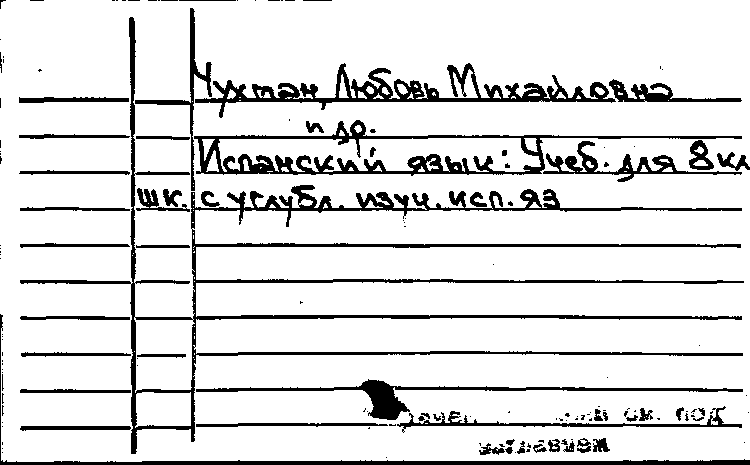 Чухман, Любовь Михайловна
и др.
Испанский язык: Учеб. для 8 кл
шк. с углубл. изуч. исп. яз
см. под
заглавием